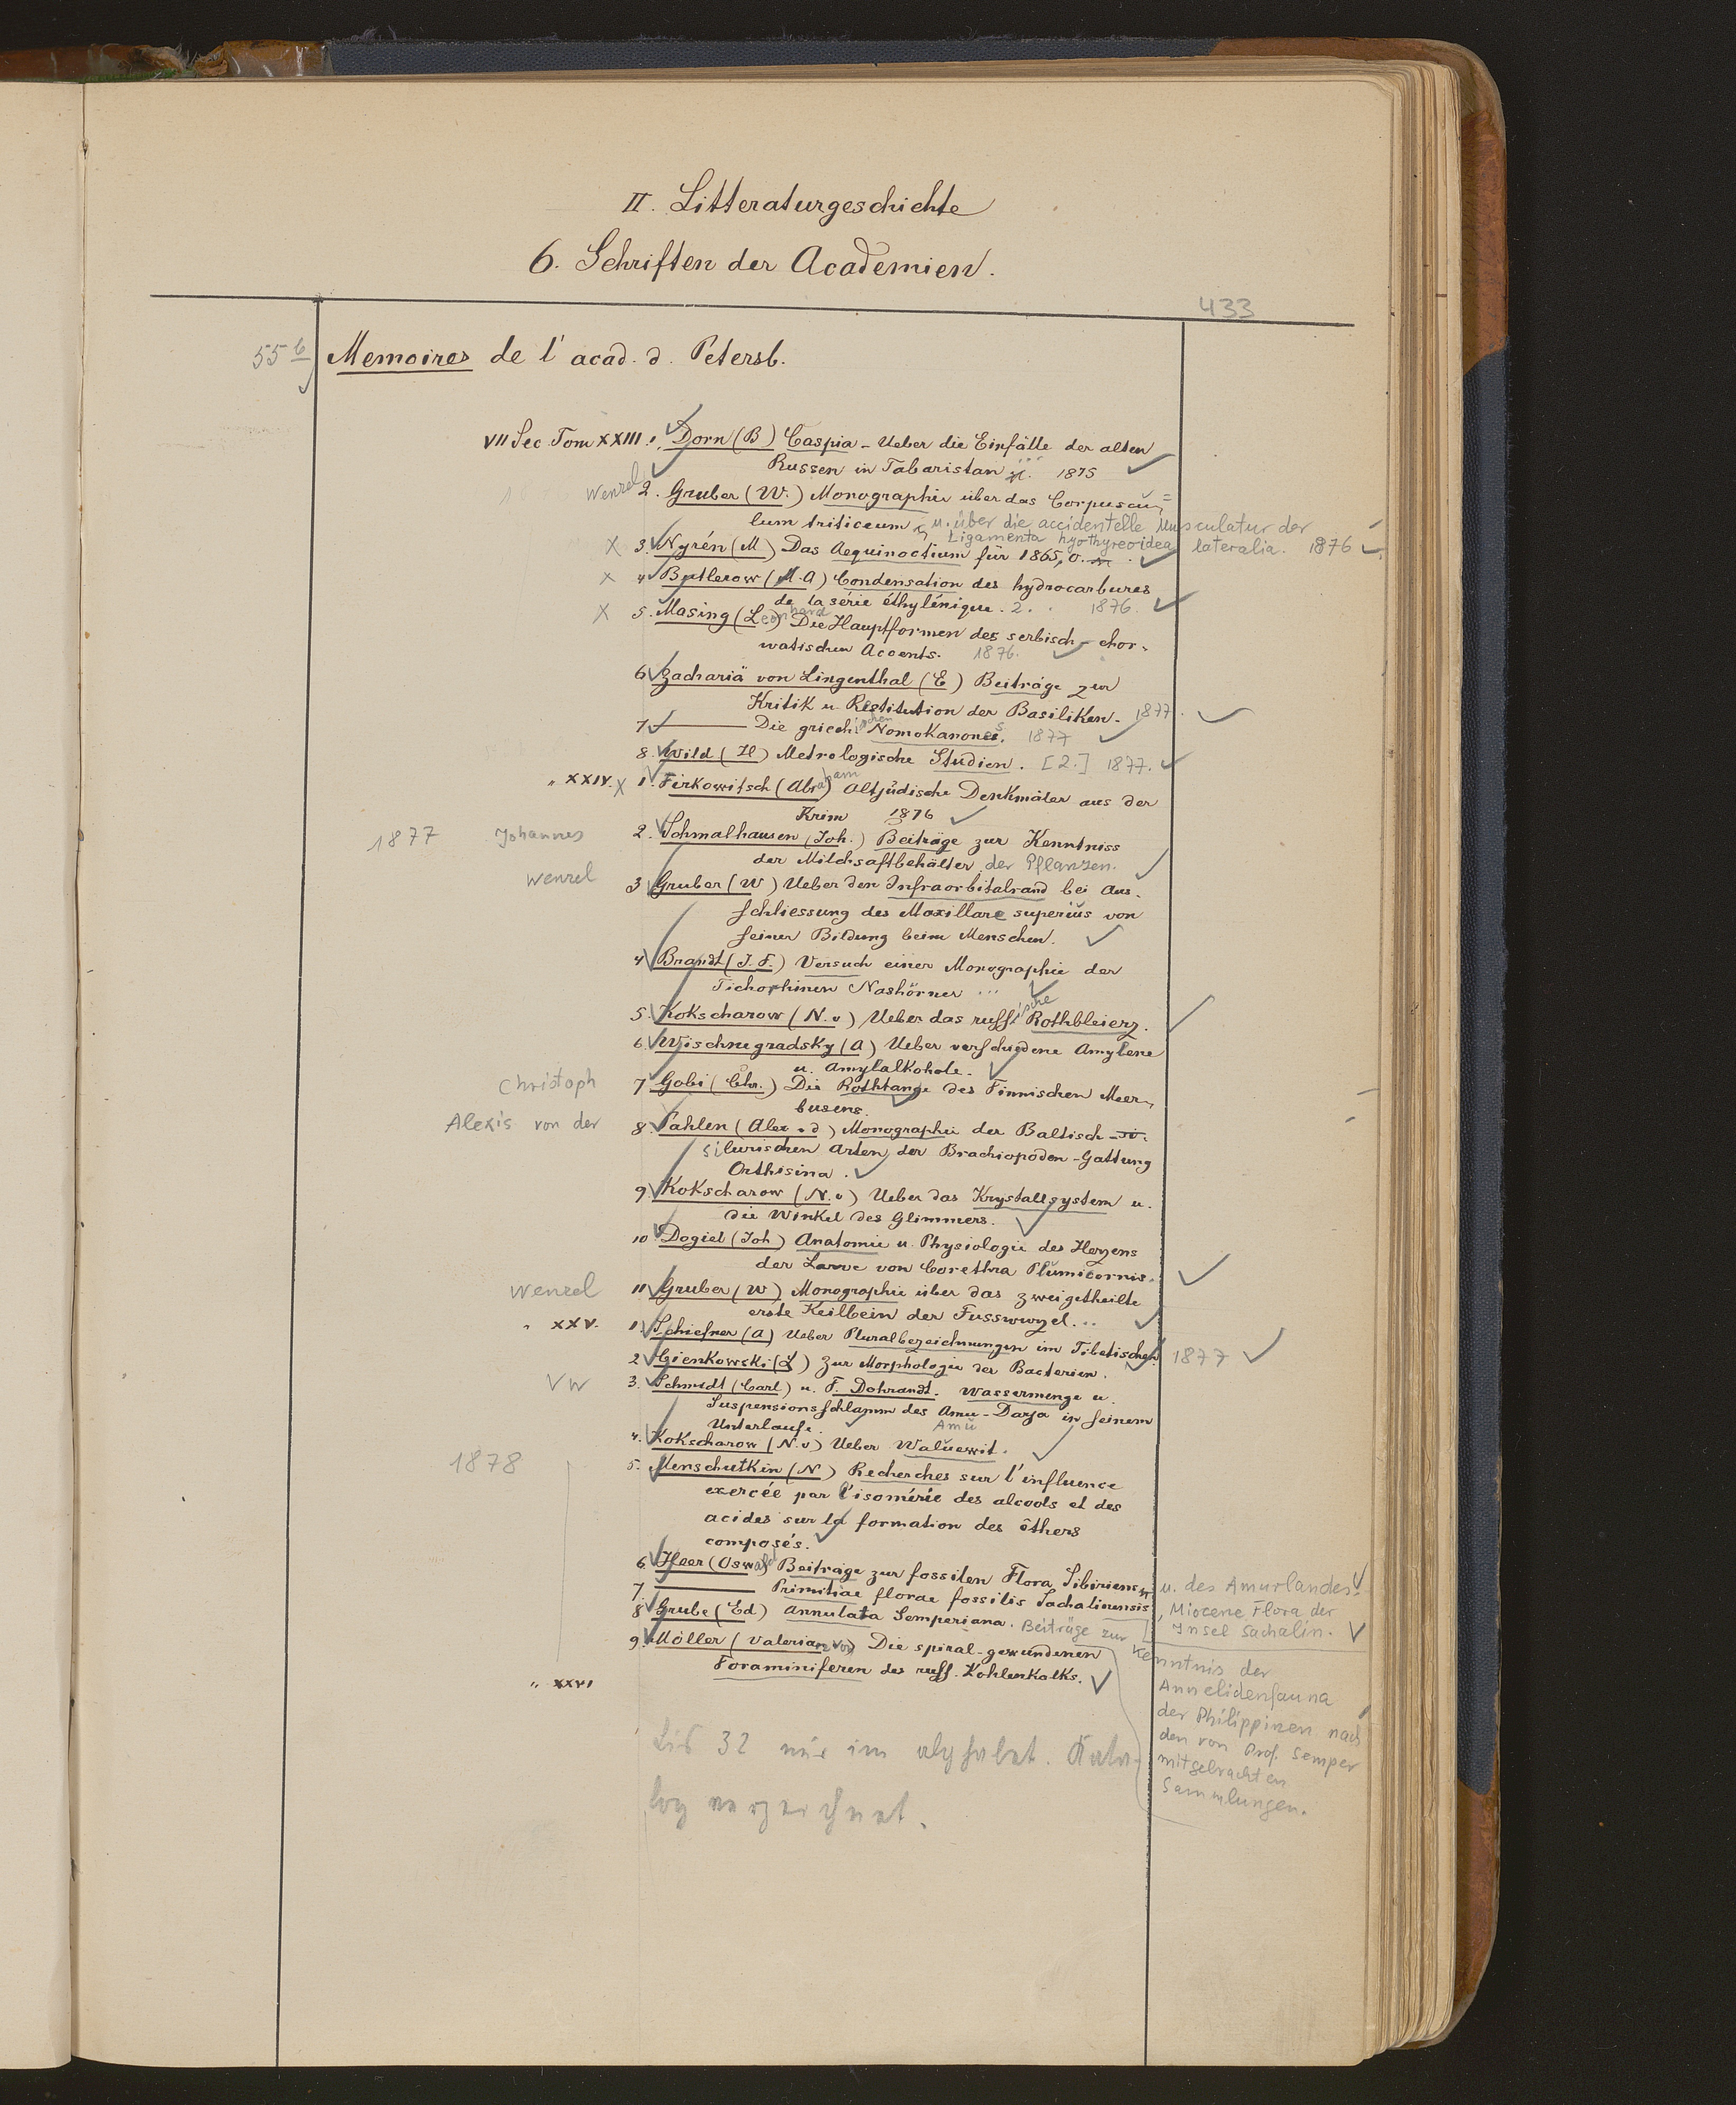 II. Litteraturgeschichte
6. Schriften der Academien.
433
55 b Memoires de l' acad. d. Petersb.
VII Sec. Tom XXIII. 1. Dorn (B) Caspia - Ueber die Einfälle der alten
Russen in Tabaristan 1875
Wenzel 2. Gruber (W.) Monographie über das Corpuscu=
lum triticeum u. über die accidentelle Musculatur der
Ligamenta hyothyreoidea lateralia. 1876
X 3. Nyrén (M) Das Aequinoctium für 1865,0.
X 4 Butlerow (M.A) Condensation des hydrocarbures
de la série éthylénique. 2. 1876.
X 5. Masing (Leonhard) Die Hauptformen des serbisch-chor-
watischen Accents. 1876.
6 Zachariä von Lingenthal (E) Beiträge zur
Kritik u. Restitution der Basiliken. 1877.
7 ——— Die griechischen Nomokanones. 1877
8. Wild (H) Metrologische Studien. [2.] 1877.
" XXIV. X 1. Firkowitsch (Abraham) Altjüdische Denkmäler aus der
Krim 1876
1877 Johannes 2. Schmalhausen (Joh.) Beiträge zur Kenntniss
der Milchsaftbehälter der Pflanzen.
Wenzel 3 Gruber (W) Ueber den Infraorbitalrand bei Aus-
schliessung des Maxillare superius von
seiner Bildung beim Menschen.
4 Brandt (J. F.) Versuch einer Monographie der
Tichorhinen Nashörner ...
5. Kokscharow (N. v) Ueber das russische Rothbleierz.
6. Wischnegradsky (A) Ueber verschiedene Amylene
u. Amylalkohole.
Christoph 7 Gobi (Chr.) Die Rothtange des Finnischen Meer-
busens.
Alexis von der 8. Pahlen (Alex v d) Monographie der Baltisch-
silurischen Arten der Brachiopoden-Gattung
Orthisina.
9. Kokscharow (N. v) Ueber das Krystallsystem u.
die Winkel des Glimmers.
10 Dogiel (Joh) Anatomie u. Physiologie des Herzens
der Larve von Corethra Plumicornis.
Wenzel 11 Gruber (W) Monographie über das zweigetheilte
erste Keilbein der Fusswurzel...
" XXV. 1. Schiefner (A) Ueber Pluralbezeichnungen im Tibetischen 1877
2 Cienkowski (L) Zur Morphologie der Bacterien.
3. Schmidt (Carl) u. F. Dohrandt. Wassermenge u.
Suspensionsschlamm des Amu-Darja in seinem
Unterlaufe. Amu
4. Kokscharow (N. v) Ueber Waluewit.
1878 5. Menschutkin (N) Recherches sur l'influence
exercée par l'isomérie des alcools et des
acides sur la formation des éthers
composés.
6. Heer (Oswald) Beiträge zur fossilen Flora Sibiriens u. des Amurlandes.
7 ——— Primitiae florae fossilis Sachalinensis, Miocene Flora der
Insel Sachalin.
8 Grube (Ed) Annulata Semperiana. Beiträge zur
Kenntnis der
Annelidenfauna
der Philippinen nach
den von Prof. Semper
mitgebrachten
Sammlungen.
9. Möller (Valerian von) Die spiral-gewundenen
Foraminiferen des russ. Kohlenkalks.
" XXVI
bis 32 nur im alphabet. Kata-
log verzeichnet.